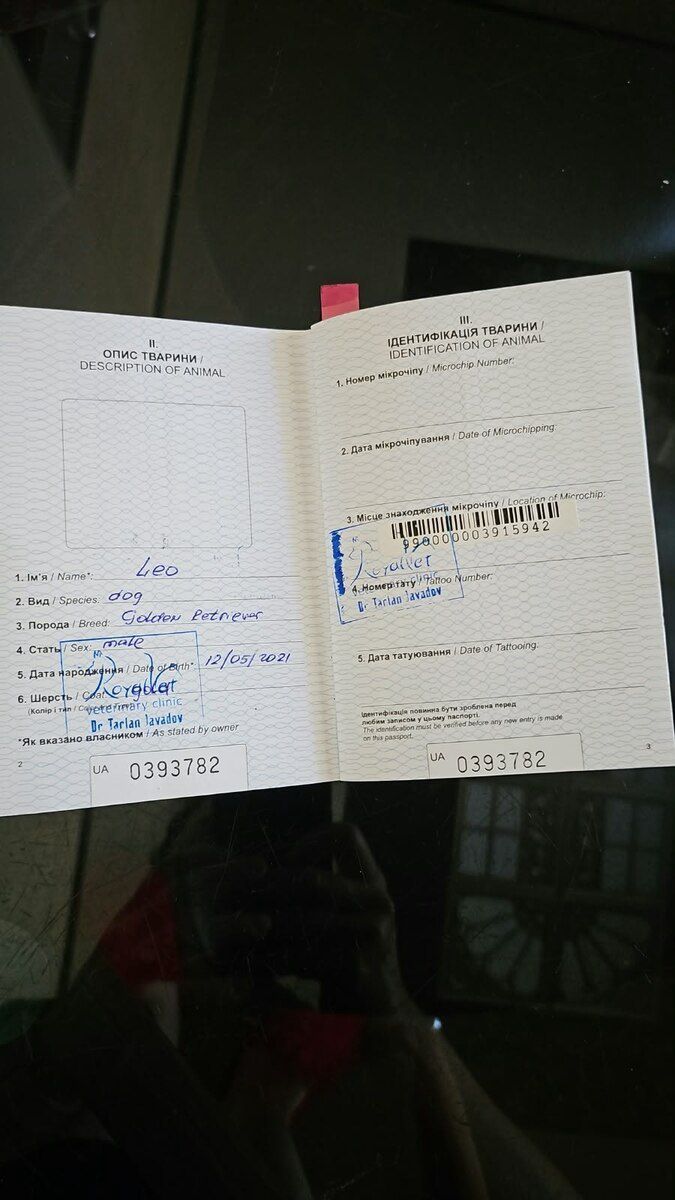 II.
ОПИС ТВАРИНИ /
DESCRIPTION OF ANIMAL
1. Ім'я / Name*: Leo
2. Вид / Species: dog
3. Порода / Breed: Golden Retriever
4. Стать / Sex: male
5. Дата народження / Date of Birth*: 12/05/2021
6. Шерсть / Coat
(Колір і тип /
veterinary clinic
Dr Tarlan Javadov
*Як вказано власником / As stated by owner
2
UA 0393782
III.
ІДЕНТИФІКАЦІЯ ТВАРИНИ /
IDENTIFICATION OF ANIMAL
1. Номер мікрочіпу / Microchip Number:
2. Дата мікрочіпування / Date of Microchipping:
3. Місце знаходження мікрочіпу / Location of Microchip:
990000003915942
4. Номер тату / Tattoo Number:
clinic
Dr Tarlan Javadov
5. Дата татуювання / Date of Tattooing:
Ідентифікація повинна бути зроблена перед
любим записом у цьому паспорті.
The identification must be verified before any new entry is made
on this passport.
3
UA 0393782